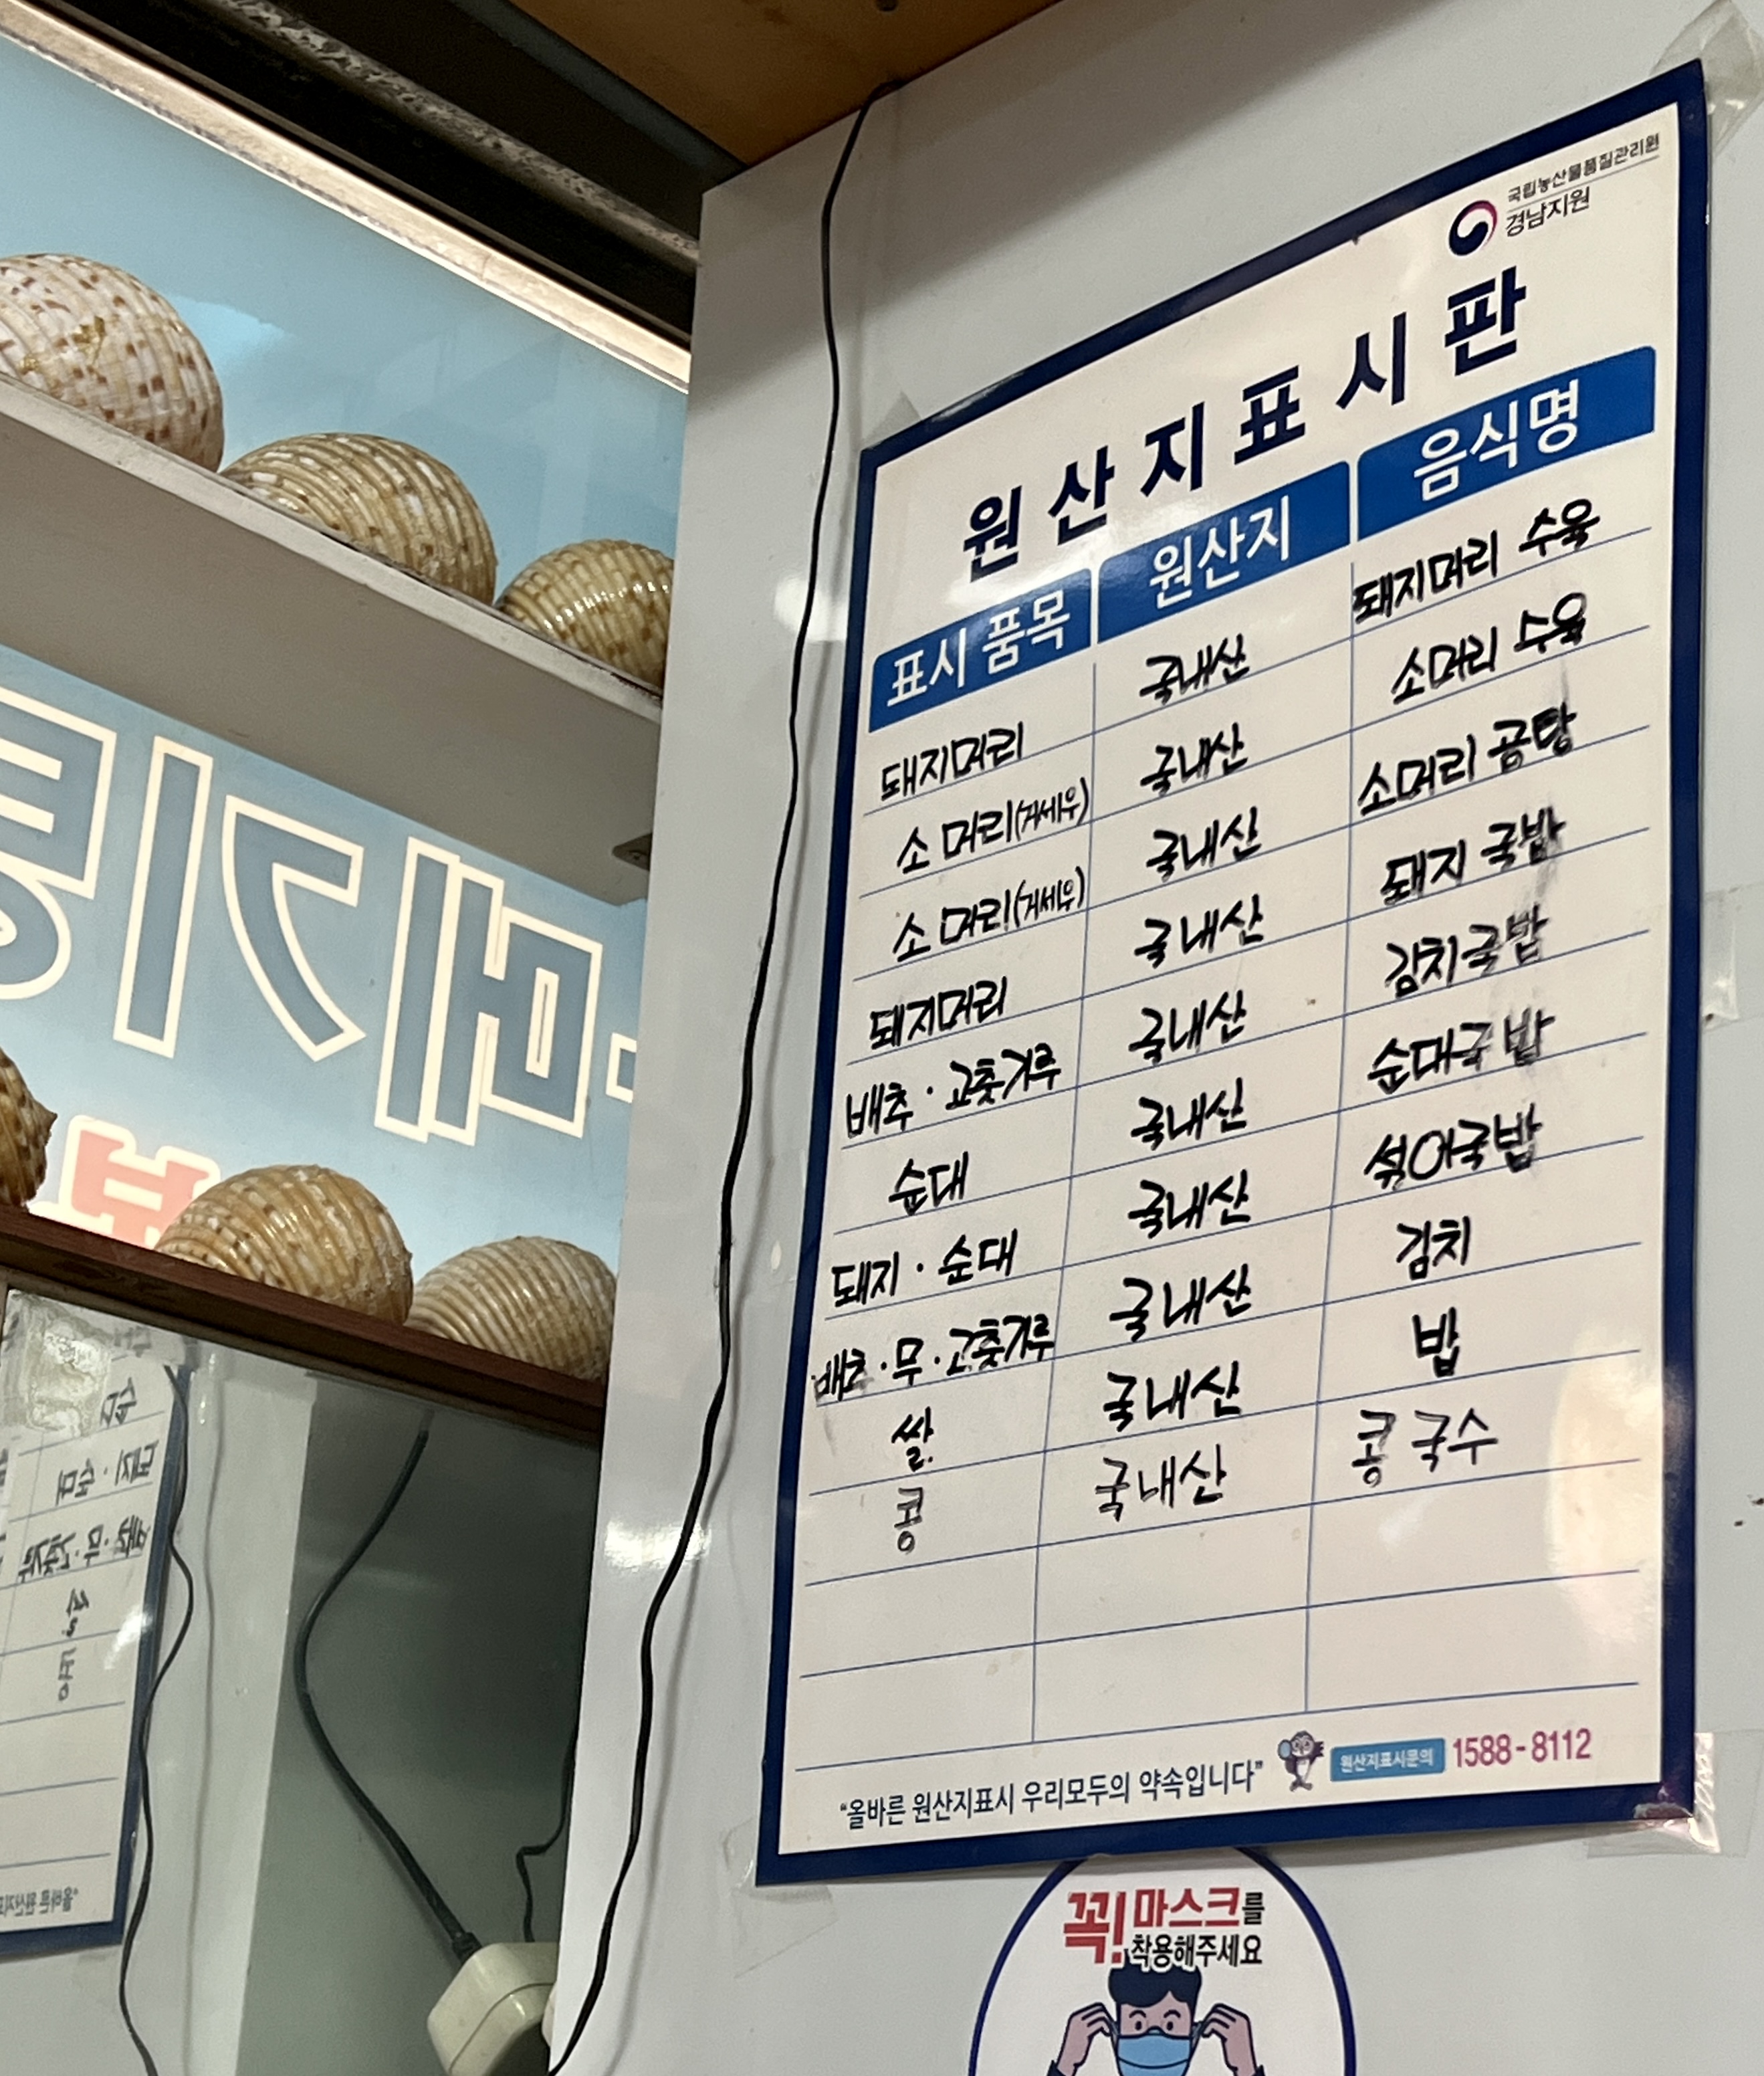 국립농산물품질관리원
경남지원
원산지표시판
표시 품목 원산지 음식명
돼지머리 국내산 돼지머리 수육
소머리(거세우) 국내산 소머리 수육
소머리(거세우) 국내산 소머리 곰탕
돼지머리 국내산 돼지 국밥
배추·고춧가루 국내산 김치국밥
순대 국내산 순대국밥
돼지·순대 국내산 섞어국밥
배추·무·고춧가루 국내산 김치
쌀 국내산 밥
콩 국내산 콩국수
"올바른 원산지표시 우리모두의 약속입니다" 원산지표시문의 1588-8112
꼭! 마스크를
착용해주세요